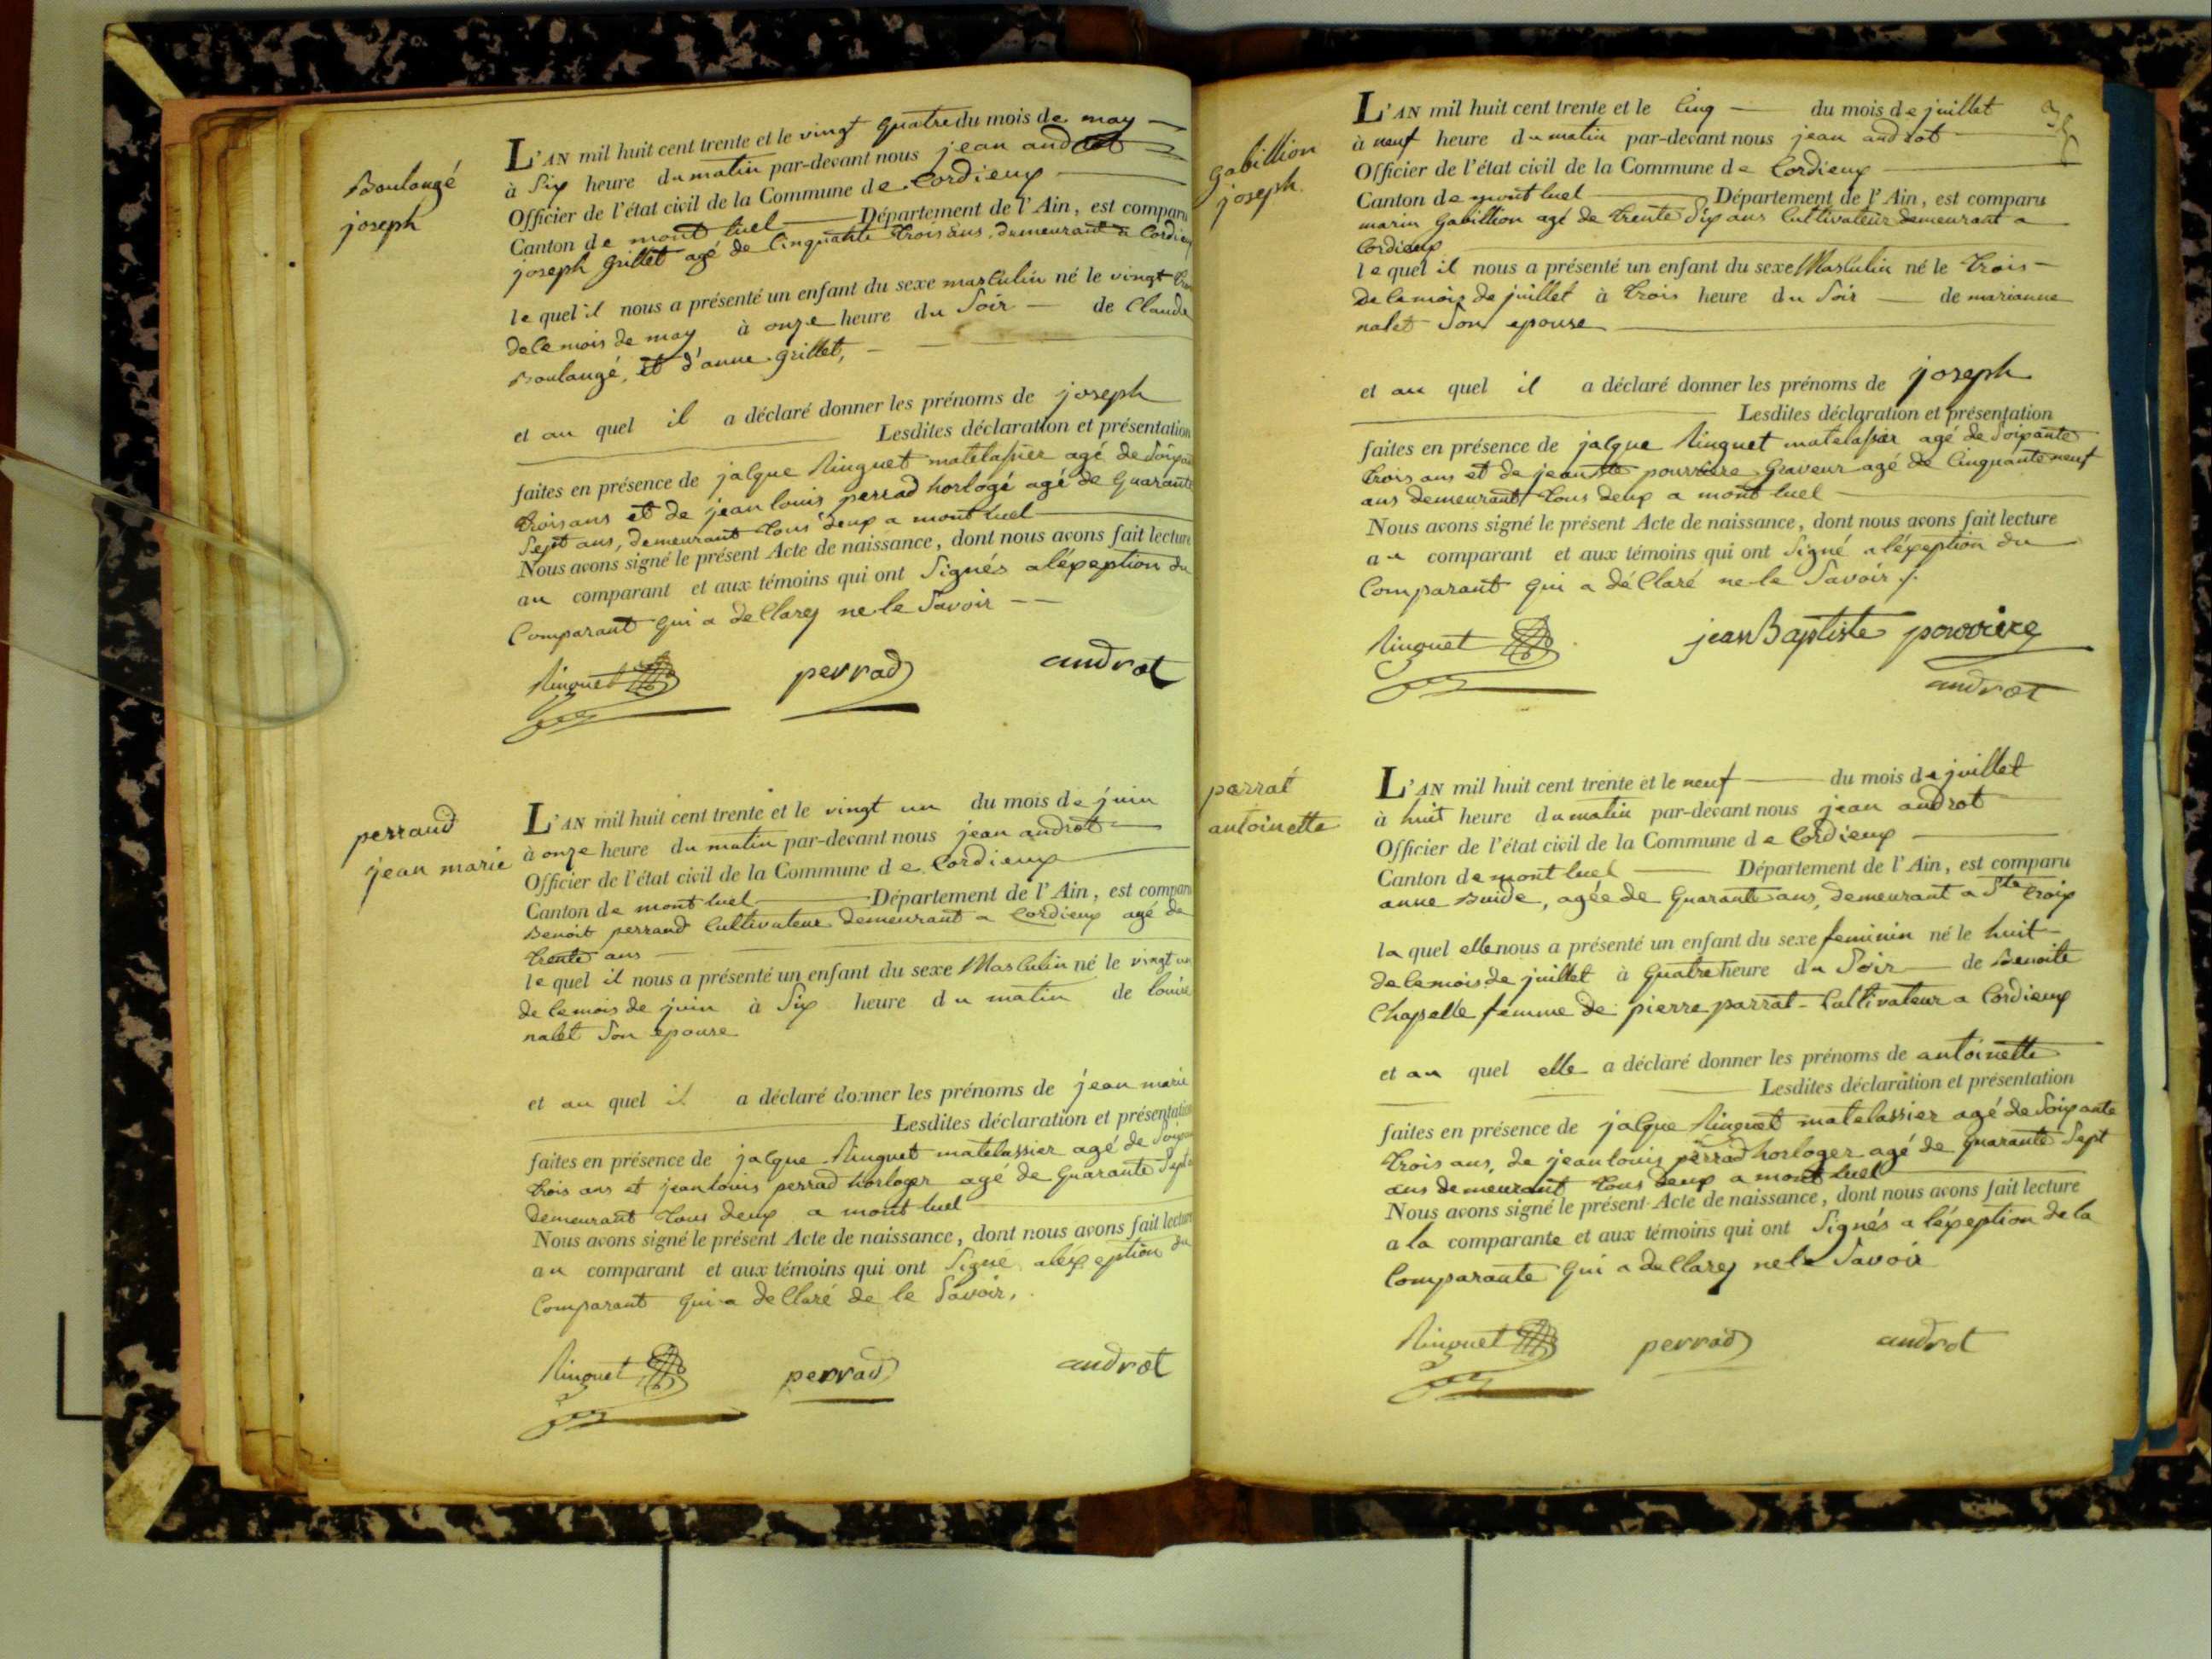 Boulangé
joseph
L'AN mil huit cent trente et le vingt quatre du mois de may
à six heure du matin par-devant nous jean androt
Officier de l'état civil de la Commune de Cordieux
Canton de mont luel Département de l'Ain, est comparu
joseph Grillet agé de Cinquante trois ans, demeurant a Cordieux
le quel il nous a présenté un enfant du sexe masculin né le vingt trois
de ce mois de may à onze heure du soir de Claude
Boulangé, et d'anne Grillet,
et au quel il a déclaré donner les prénoms de joseph
Lesdites déclaration et présentation
faites en présence de jacque Ringuet matelassier agé de soixante
trois ans et de jean louis perrad horlogé agé de quarante
sept ans, demeurant tous deux a mont luel
Nous avons signé le présent Acte de naissance, dont nous avons fait lecture
au comparant et aux témoins qui ont signés a léxeption du
Comparant qui a declarez ne le savoir
Ringuet perrad androt
perraud
jean marie
L'AN mil huit cent trente et le vingt un du mois de juin
à onze heure du matin par-devant nous jean androt
Officier de l'état civil de la Commune de Cordieux
Canton de mont luel Département de l'Ain, est comparu
Benoit perraud Cultivateur demeurant a Cordieux agé de
trente ans
le quel il nous a présenté un enfant du sexe Masculin né le vingt un
de ce mois de juin à six heure du matin de louise
nalet son epouse
et au quel il a déclaré donner les prénoms de jean marie
Lesdites déclaration et présentation
faites en présence de jacque Ringuet matelassier agé de soixante
trois ans et jean louis perrad horloger agé de quarante sept
demeurant tous deux a mont luel
Nous avons signé le présent Acte de naissance, dont nous avons fait lecture
au comparant et aux témoins qui ont signé aléxeption du
Comparant qui a declaré de le savoir,
Ringuet perrad androt
gabillion
joseph
L'AN mil huit cent trente et le cinq du mois de juillet
à neuf heure du matin par-devant nous jean androt
Officier de l'état civil de la Commune de Cordieux
Canton de mont luel Département de l'Ain, est comparu
marin Gabillion agé de trente six ans Cultivateur demeurant a
Cordieux
le quel il nous a présenté un enfant du sexe Masculin né le trois
de ce mois de juillet à trois heure du soir de marianne
nalet son epouse
et au quel il a déclaré donner les prénoms de joseph
Lesdites déclaration et présentation
faites en présence de jacque Ringuet matelassier agé de soixante
trois ans et de jean Bte pourriere Graveur agé de Cinquante neuf
ans demeurant tous deux a mont luel
Nous avons signé le présent Acte de naissance, dont nous avons fait lecture
au comparant et aux témoins qui ont signé a léxeption du
Comparant qui a déclaré ne le savoir
Ringuet jean Baptiste
androt
parrat
antoinette
L'AN mil huit cent trente et le neuf du mois de juillet
à huit heure du matin par-devant nous jean androt
Officier de l'état civil de la Commune de Cordieux
Canton de mont luel Département de l'Ain, est comparu
anne Buide, agée de quarante ans, demeurant a Ste Croix
la quel elle nous a présenté un enfant du sexe feminin né le huit
de ce mois de juillet à quatre heure du soir de Benoite
Chapelle femme de pierre parrat Cultivateur a Cordieux
et au quel elle a déclaré donner les prénoms de antoinette
Lesdites déclaration et présentation
faites en présence de jacque Ringuet matelassier agé de soixante
trois ans, de jean louis perrad horloger agé de quarante sept
ans demeurant tous deux a mont luel
Nous avons signé le présent Acte de naissance, dont nous avons fait lecture
a la comparante et aux témoins qui ont signés a léxeption de la
Comparante qui a declarez ne le savoir
Ringuet perrad androt